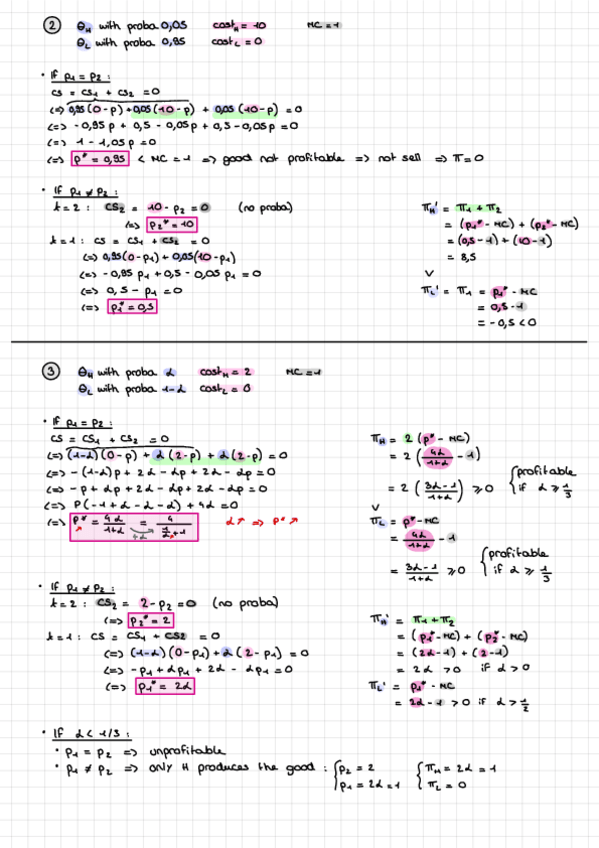 ② θH with proba 0,05 costH = 10 MC = 1
θL with proba 0,95 costL = 0
• If p1 = p2 :
CS = CS1 + CS2 = 0
(=) 0,95(0 - p) + 0,05(10 - p) + 0,05(10 - p) = 0
(=) - 0,95p + 0,5 - 0,05p + 0,5 - 0,05p = 0
(=) 1 - 1,05p = 0
(=) p* = 0,95 < MC = 1 => good not profitable => not sell => π = 0
• If p1 ≠ p2 :
t = 2 : CS2 = 10 - p2 = 0 (no proba)
(=) p2* = 10
t = 1 : CS = CS1 + CS2 = 0
(=) 0,95(0 - p1) + 0,05(10 - p1)
(=) - 0,95 p1 + 0,5 - 0,05 p1 = 0
(=) 0,5 - p1 = 0
(=) p1* = 0,5
πH' = π1 + π2
= (p1* - MC) + (p2* - MC)
= (0,5 - 1) + (10 - 1)
= 8,5
V
πL' = π1 = p1* - MC
= 0,5 - 1
= - 0,5 < 0
③ θH with proba α costH = 2 MC = 1
θL with proba 1-α costL = 0
• If p1 = p2 :
CS = CS1 + CS2 = 0
(=) (1-α)(0 - p) + α(2 - p) + α(2 - p) = 0
(=) - (1-α)p + 2α - αp + 2α - αp = 0
(=) -p + αp + 2α - αp + 2α - αp = 0
(=) p(-1 + α - α - α) + 4α = 0
(=) p* = 4α/(1+α) = 4/(1/α + 1) α↗ => p*↗
÷α
πH = 2 (p* - MC)
= 2 (4α/(1+α) - 1)
= 2 (3α - 1/(1+α)) ⩾ 0 { profitable if α ⩾ 1/3
V
πL = p* - MC
= 4α/(1+α) - 1
= 3α - 1/(1+α) ⩾ 0 { profitable if α ⩾ 1/3
• If p1 ≠ p2 :
t = 2 : CS2 = 2 - p2 = 0 (no proba)
(=) p2* = 2
t = 1 : CS = CS1 + CS2 = 0
(=) (1-α)(0 - p1) + α(2 - p1) = 0
(=) -p1 + αp1 + 2α - αp1 = 0
(=) p1* = 2α
πH' = π1 + π2
= (p1* - MC) + (p2* - MC)
= (2α - 1) + (2 - 1)
= 2α > 0 if α > 0
πL' = p1* - MC
= 2α - 1 > 0 if α > 1/2
• If α < 1/3 :
• p1 = p2 => unprofitable
• p1 ≠ p2 => only H produces the good : { p2 = 2 { πH = 2α = 1
p1 = 2α = 1 πL = 0